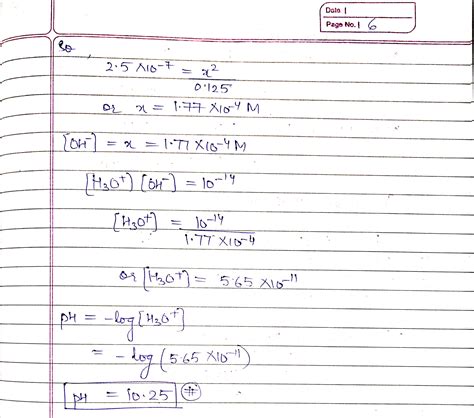 Date |
Page No. | 6
So
2.5 × 10⁻⁷ = x² / 0.125
or x = 1.77 × 10⁻⁴ M
[OH⁻] = x = 1.77 × 10⁻⁴ M
[H₃O⁺] [OH⁻] = 10⁻¹⁴
[H₃O⁺] = 10⁻¹⁴ / 1.77 × 10⁻⁴
or [H₃O⁺] = 5.65 × 10⁻¹¹
pH = -log [H₃O⁺]
= - log (5.65 × 10⁻¹¹)
pH = 10.25 #